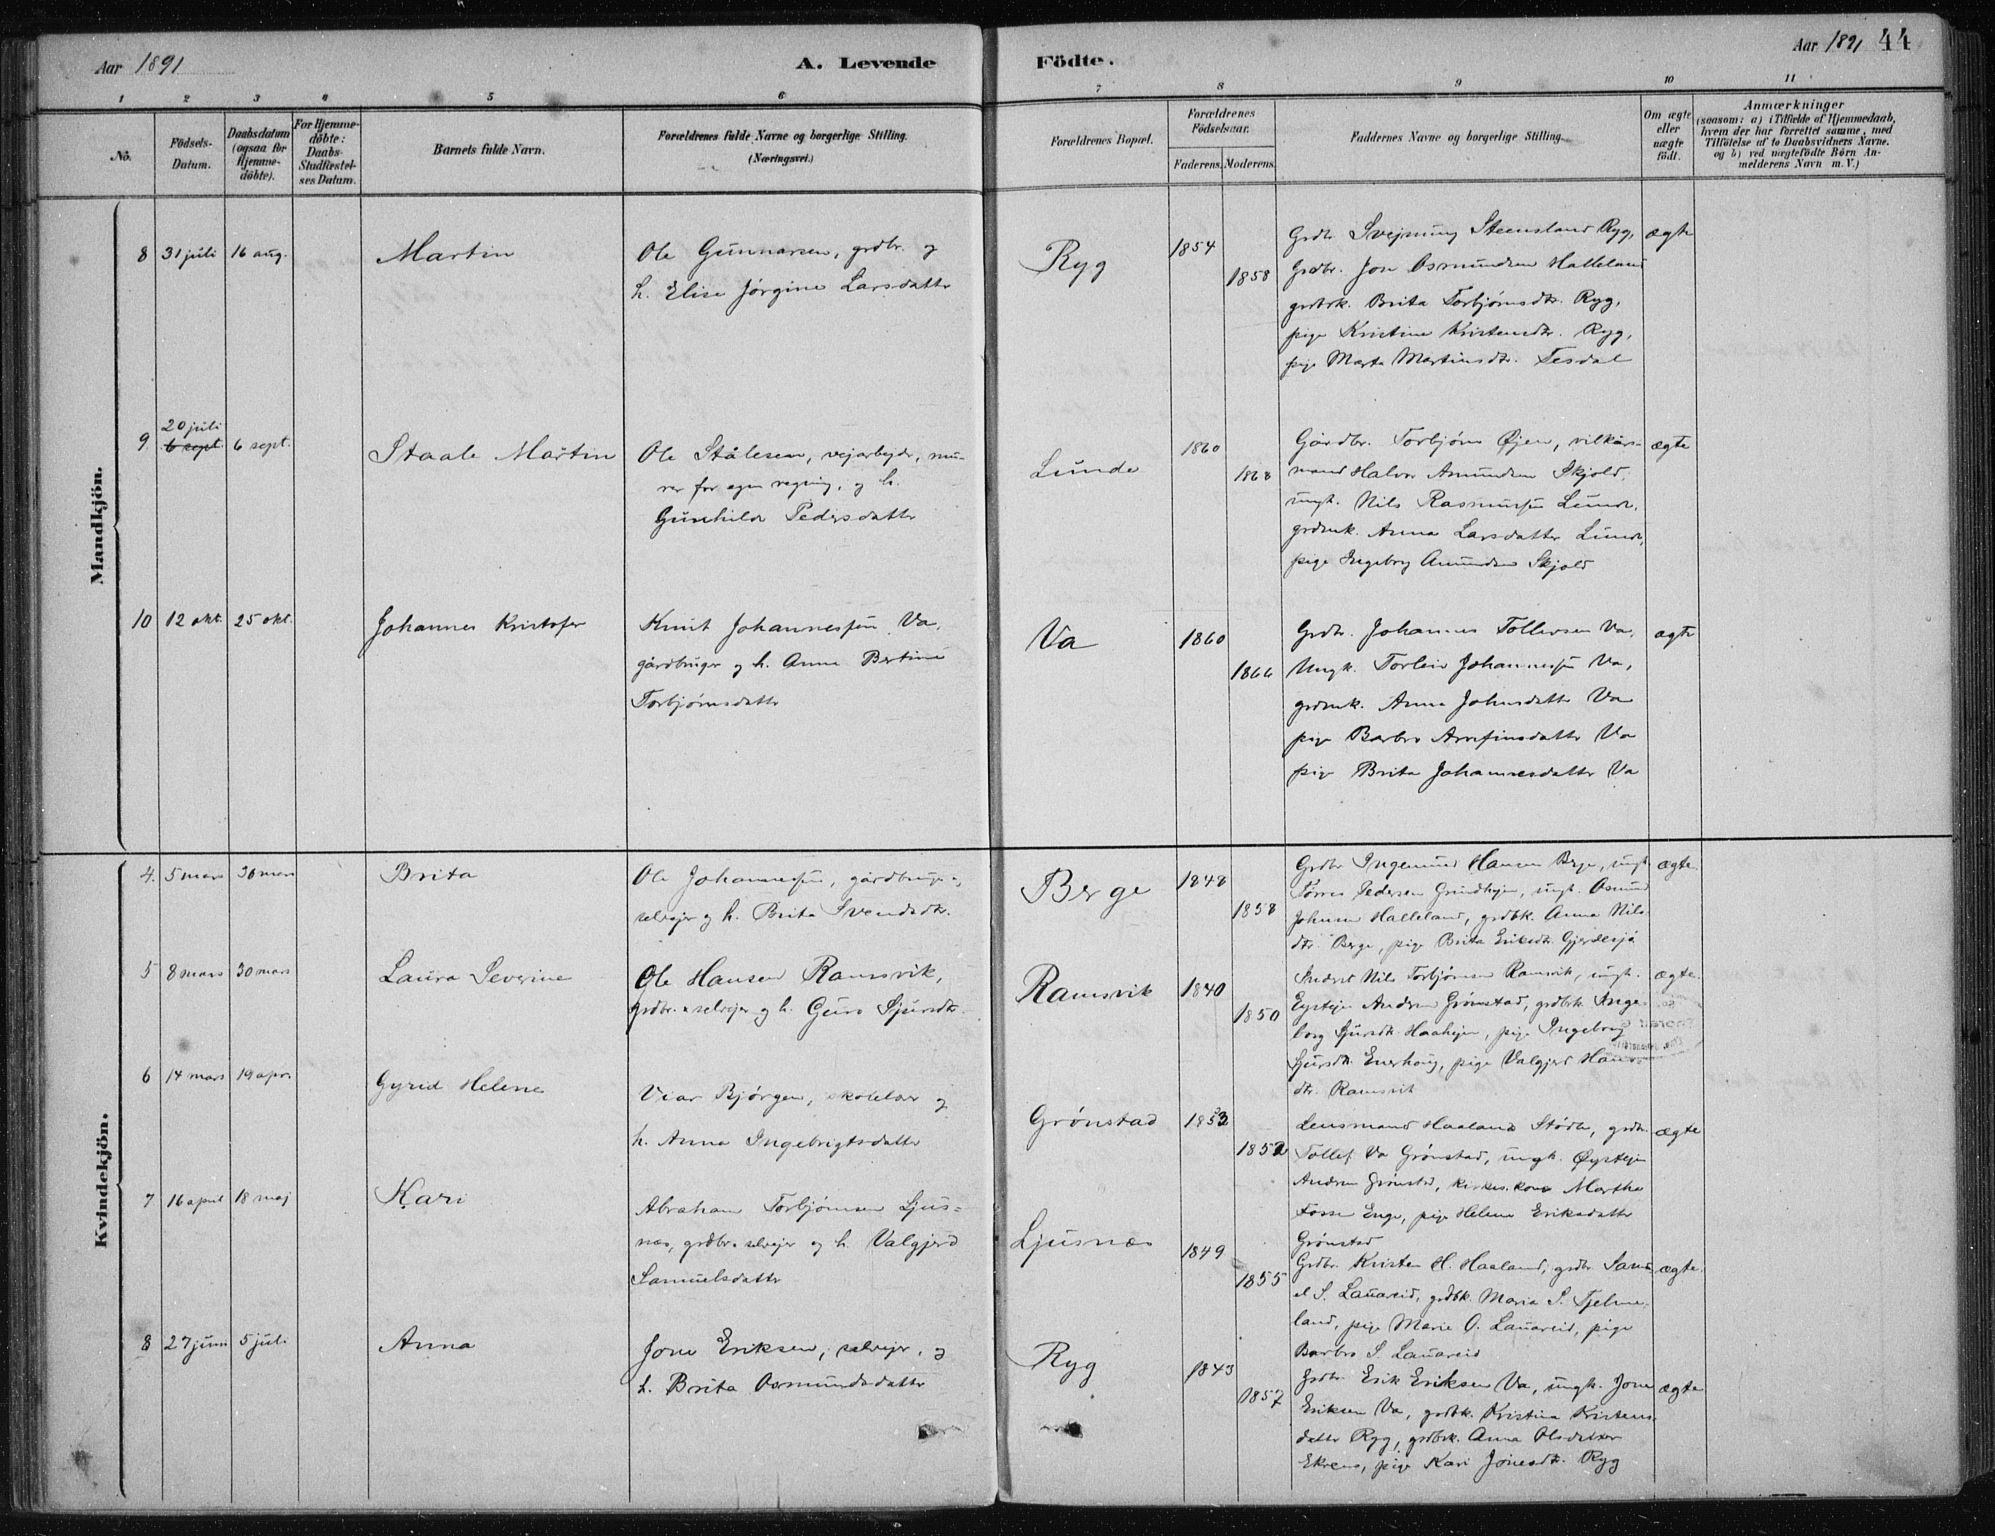 Aar 1891
A. Levende
Födte.
Aar 1891
44
1 2 3 4 5 6 7 8 9 10 11
No.
Födsels-
Datum.
Daabsdatum
(ogsaa for
Hjemme-
döbte).
For Hjemme-
döbte:
Daabs-
Stadfæstel-
ses Datum.
Barnets fulde Navn.
Forældrenes fulde Navne og borgerlige Stilling.
(Næringsvei.)
Forældrenes Bopæl.
Forældrenes
Födselsaar.
Faderens.
Moderens.
Faddernes Navne og borgerlige Stilling.
Om ægte
eller
uægte
födt.
Anmærkninger
(saasom: a) i Tilfælde af Hjemmedaab,
hvem der har forrettet samme, med
Tilföielse af to Daabsvidners Navne.
og b) ved uægtefödte Börn An-
melderens Navn m. V.)
Mandkjön.
8 31 juli 16 aug.
Martin
Ole Gunnarsen, grdbr. og
h. Elise Jørgine Larsdatter
Ryg
1854
1858
Grdbr Svejnung Steensland Ryg,
Grdbr. Jon Osmundsen Halleland
grdbrk. Brita Torbjørnsdtr. Ryg,
pige Kristine Kristensdtr. Ryg,
pige Marta Martinsdtr. Tesdal
ægte
9. 20 juli
6 sept. 6 sept.
Staale Martin
Ole Stålesen, vejarbejdr, mu-
rer for egen regning, og h.
Gunhilda Pedersdatter
Lunde
1860
1868
Gårdbr. Torbjørn Øjen, vilkårs-
mand Halvor Amundsen Skjold,
ungk. Nils Rasmussen Lunde,
grdmk. Anna Larsdatter Lunde,
pige Ingebrg Amundsen Skjold
ægte
10 12 okt. 25 okt.
Johannes Kristofer
Knut Johannessen Va,
gårdbruger og h. Anna Bertine
Torbjørnsdatter
Va
1860
1866
Grdbr. Johannes Tollevsen Va,
Ungk. Torleiv Johannessen Va,
grdmk. Anna Johnsdatter Va
pige Barbro Arnfinsdatter Va
pige Brita Johannesdatter Va
ægte
Kvindekjön.
4. 5 mars 30 mars
Brita
Ole Johannessen, gårdbruger,
selvejer og h. Brita Svendsdtr.
Berge
1848
1858
Grdbr Ingemund Hansen Berge, ungk.
Tørres Pedersen Grindhejm, ungk. Osmund
Johnsen Halleland, grdbk. Anna Nils-
dtr. Berge, pige Brita Eriksdtr. Gjerdesjå
ægte
5 8 mars 30 mars
Laura Severine
Ole Hansen Ramsvik,
grdbr. selvejer og h. Guro Sjursdtr.
Ramsvik
1840
1850
Nils Torbjørnsen Ramsvik, ungk.
Eystejn Andersen Grønstad, grdbrk. Inge-
borg Sjursdtr. Haahejm, pige Ingeborg
Sjursdtr. Enerhoug, pige Valgjerd Hans-
dtr. Ramsvik
ægte.
6 14 mars 19 apr.
Gyrid Helene
Viar Bjørgen, skolelær og
h. Anna Ingebrigtsdatter
Grønstad
1853
1852
Lensmand Haaland Støda, grdbr.
Tollef Va Grønstad, ungk. Øystejn
Andersen Grønstad, kirkes. kone Martha
Fosse Enge, pige Helene Eriksdatter
Grønstad
ægte
7 16 april 18 maj
Kari
Abraham Torbjørnsen Ljus-
næs, grdbr. selvejer og h. Valgjerd
Samuelsdatter
Ljusnæs
1849
1855
Grdbr. Kristen H. Haaland, grdbr Samu-
el S. Lauareid, grdbk. Maria S. Tjelme-
land, pige Marie O. Lauareid, pige
Barbro S. Lauareid
ægte.
8 27 juni 5 juli
Anna
Jone Eriksen, selvejer, og
h. Brita Osmundsdatter
Ryg
1843
1857
Grdbr. Erik Eriksen Va, ungk. Jone
Eriksen Va, grdbk. Kristina Kristens-
datter Ryg, grdbrk. Anna Olsdatter
Ekrene, pige Kari Jonesdtr. Ryg
ægte